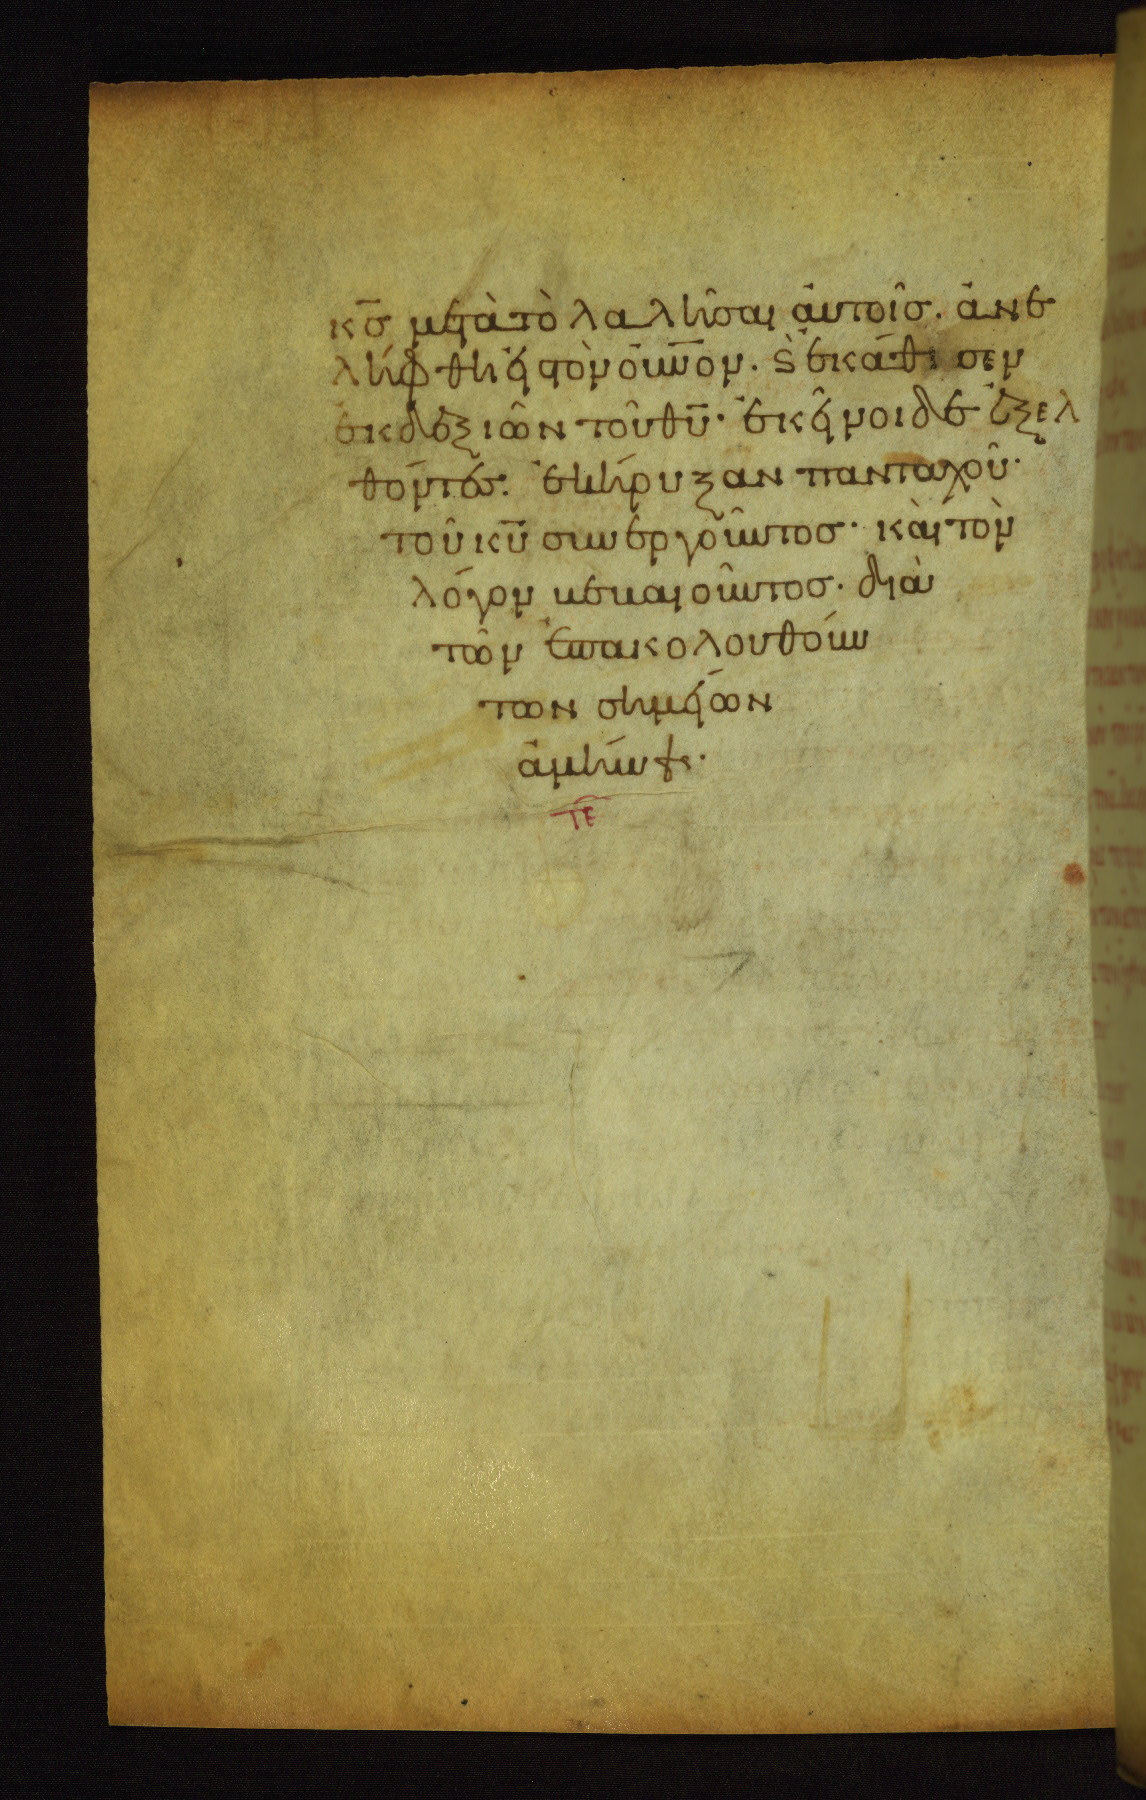 κ̅σ̅ μετὰ τὸ λαλῆσαι αὐτοῖσ. ἀνε
λήφθη εἰς τὸν οὐ̅νο̅ν. ϗ ἐκάθισεν
ἐκ δεξιῶν τοῦ θ̅υ̅· ἐκεῖνοι δὲ ἐξελ
θόντες. ἐκήρυξαν πανταχοῦ·
τοῦ κ̅υ̅ συνεργοῦντοσ· καὶ τὸν
λόγον βεβαιοῦντοσ· διὰ
τῶν ἐπακολουθούν
των σημείων
ἀμήν
τε